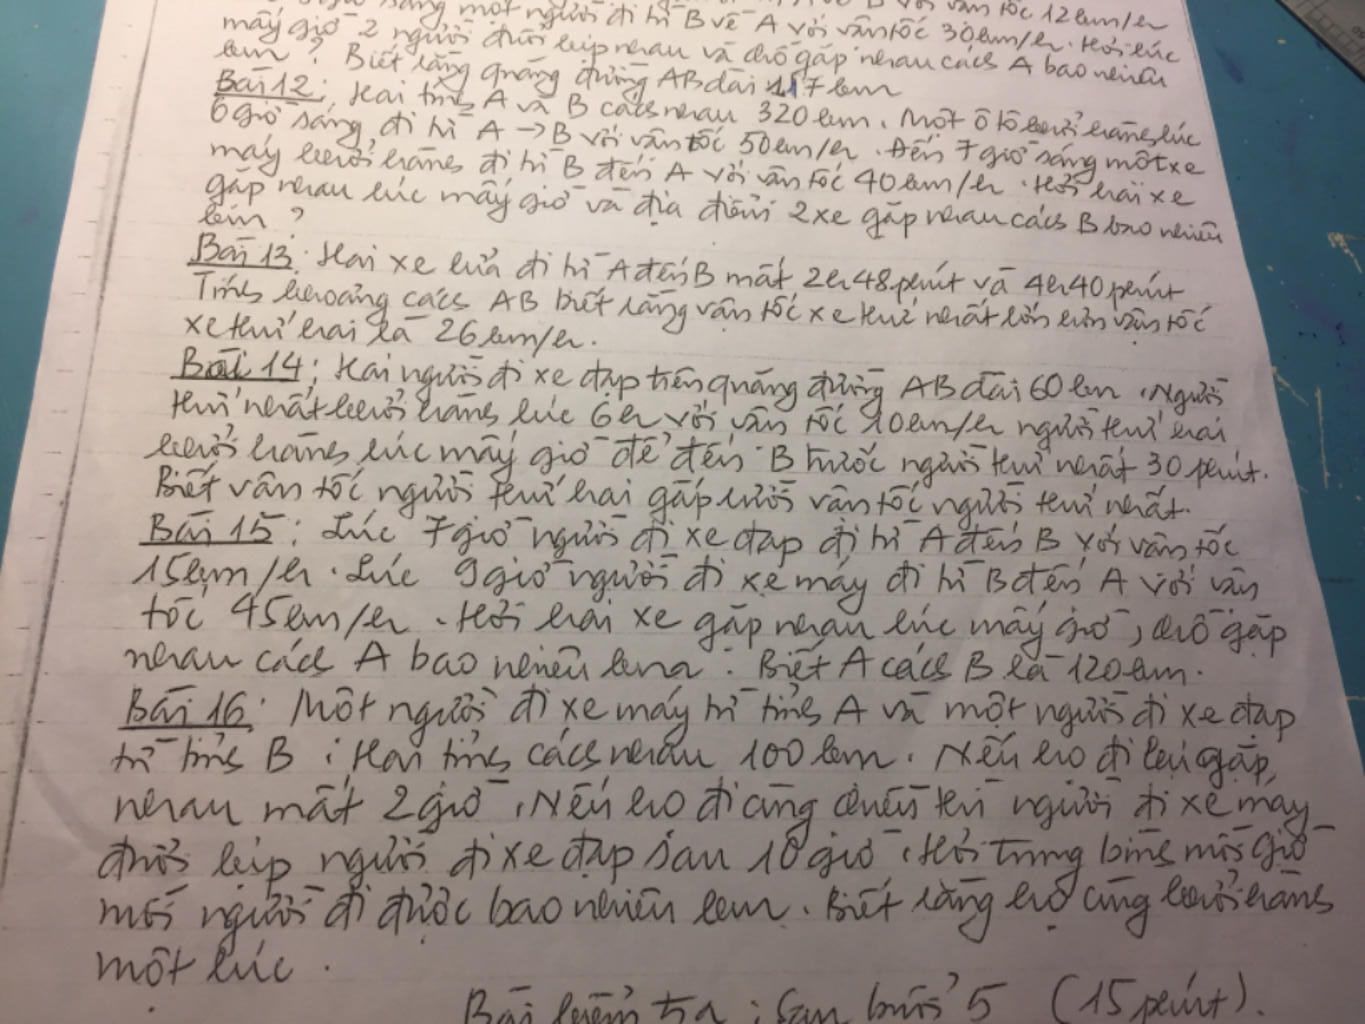 sáng một người đi từ B về A với vận tốc 30km/h. Hỏi lúc
mấy giờ 2 người đuổi kịp nhau và chỗ gặp nhau cách A bao nhiêu
km? Biết rằng quãng đường AB dài 117km
Bài 12: Hai tỉnh A và B cách nhau 320km. Một ô tô khởi hành lúc
6 giờ sáng đi từ A → B với vận tốc 50km/h. Đến 7 giờ sáng một xe
máy khởi hành đi từ B đến A với vận tốc 40km/h. Hỏi hai xe
gặp nhau lúc mấy giờ và địa điểm 2 xe gặp nhau cách B bao nhiêu
km?
Bài 13: Hai xe lửa đi từ A đến B mất 2h48phút và 4h40phút
Tính khoảng cách AB biết rằng vận tốc xe thứ nhất lớn hơn vận tốc
xe thứ hai là 26km/h.
Bài 14: Hai người đi xe đạp trên quãng đường AB dài 60km. Người
thứ nhất khởi hành lúc 6h với vận tốc 10km/h người thứ hai
khởi hành lúc mấy giờ để đến B trước người thứ nhất 30 phút.
Biết vận tốc người thứ hai gấp rưỡi vận tốc người thứ nhất.
Bài 15: Lúc 7 giờ người đi xe đạp đi từ A đến B với vận tốc
15km/h. Lúc 9 giờ người đi xe máy đi từ B đến A với vận
tốc 45km/h. Hỏi hai xe gặp nhau lúc mấy giờ, chỗ gặp
nhau cách A bao nhiêu km. Biết A cách B là 120km.
Bài 16: Một người đi xe máy từ tỉnh A và một người đi xe đạp
từ tỉnh B; Hai tỉnh cách nhau 100km. Nếu họ đi lại gặp
nhau mất 2 giờ. Nếu họ đi cùng chiều thì người đi xe máy
đuổi kịp người đi xe đạp sau 10 giờ. Hỏi trung bình mỗi giờ
mỗi người đi được bao nhiêu km. Biết rằng họ cùng khởi hành
một lúc.
Bài kiểm tra: Sau buổi 5 (15 phút).